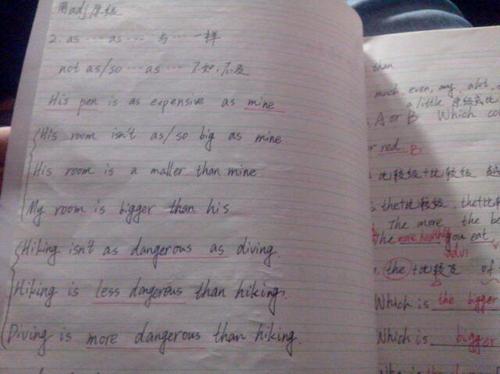 用adj原级
2. as … as … 与 … 一样
not as/so … as … 不如,不及
His pen is as expensive as mine
His room isn't as/so big as mine
His room is a maller than mine
My room is bigger than his
Hiking isn't as dangerous as diving
Hiking is less dangerous than hiking.
Diving is more dangerous than hiking.
than
much even, any,
a little
A or B Which
or red B
比较级+比较级
the+比较级, the+比
The more the be
The you eat,
the+比较级 of
Which is the bigger
Which is bigger